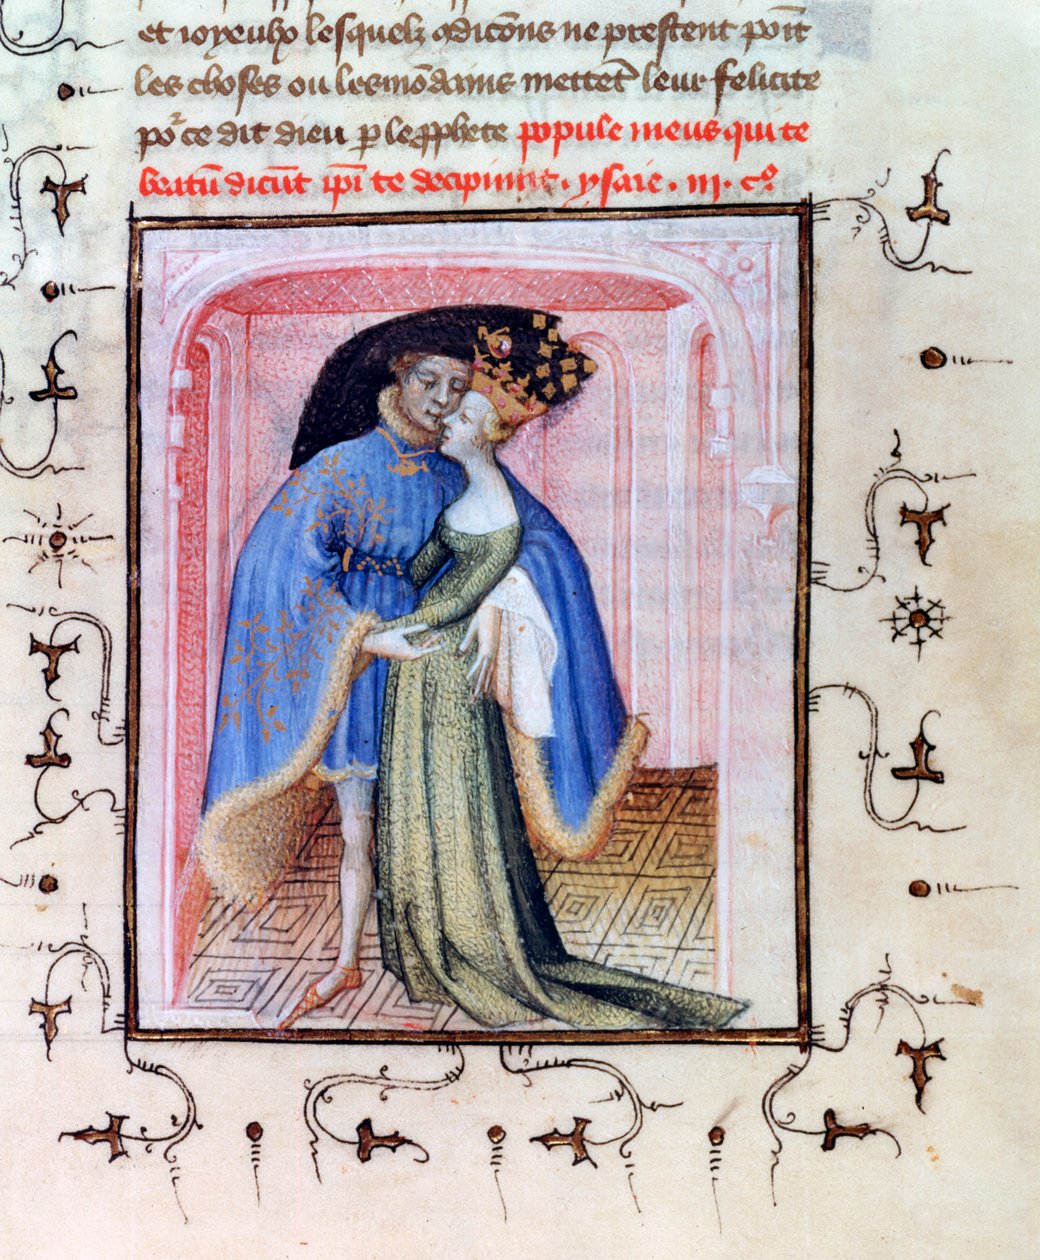 et ioyeulx lesquelz ꝯdicõns ne prestent poĩt
les choses ou les mõdains mettẽt leur felicite
poʳ ce dit dieu ꝑ le ꝓphete popule meus qui te
beatũ dicũt ipĩ te decipiunt. ysaie. iii. cº